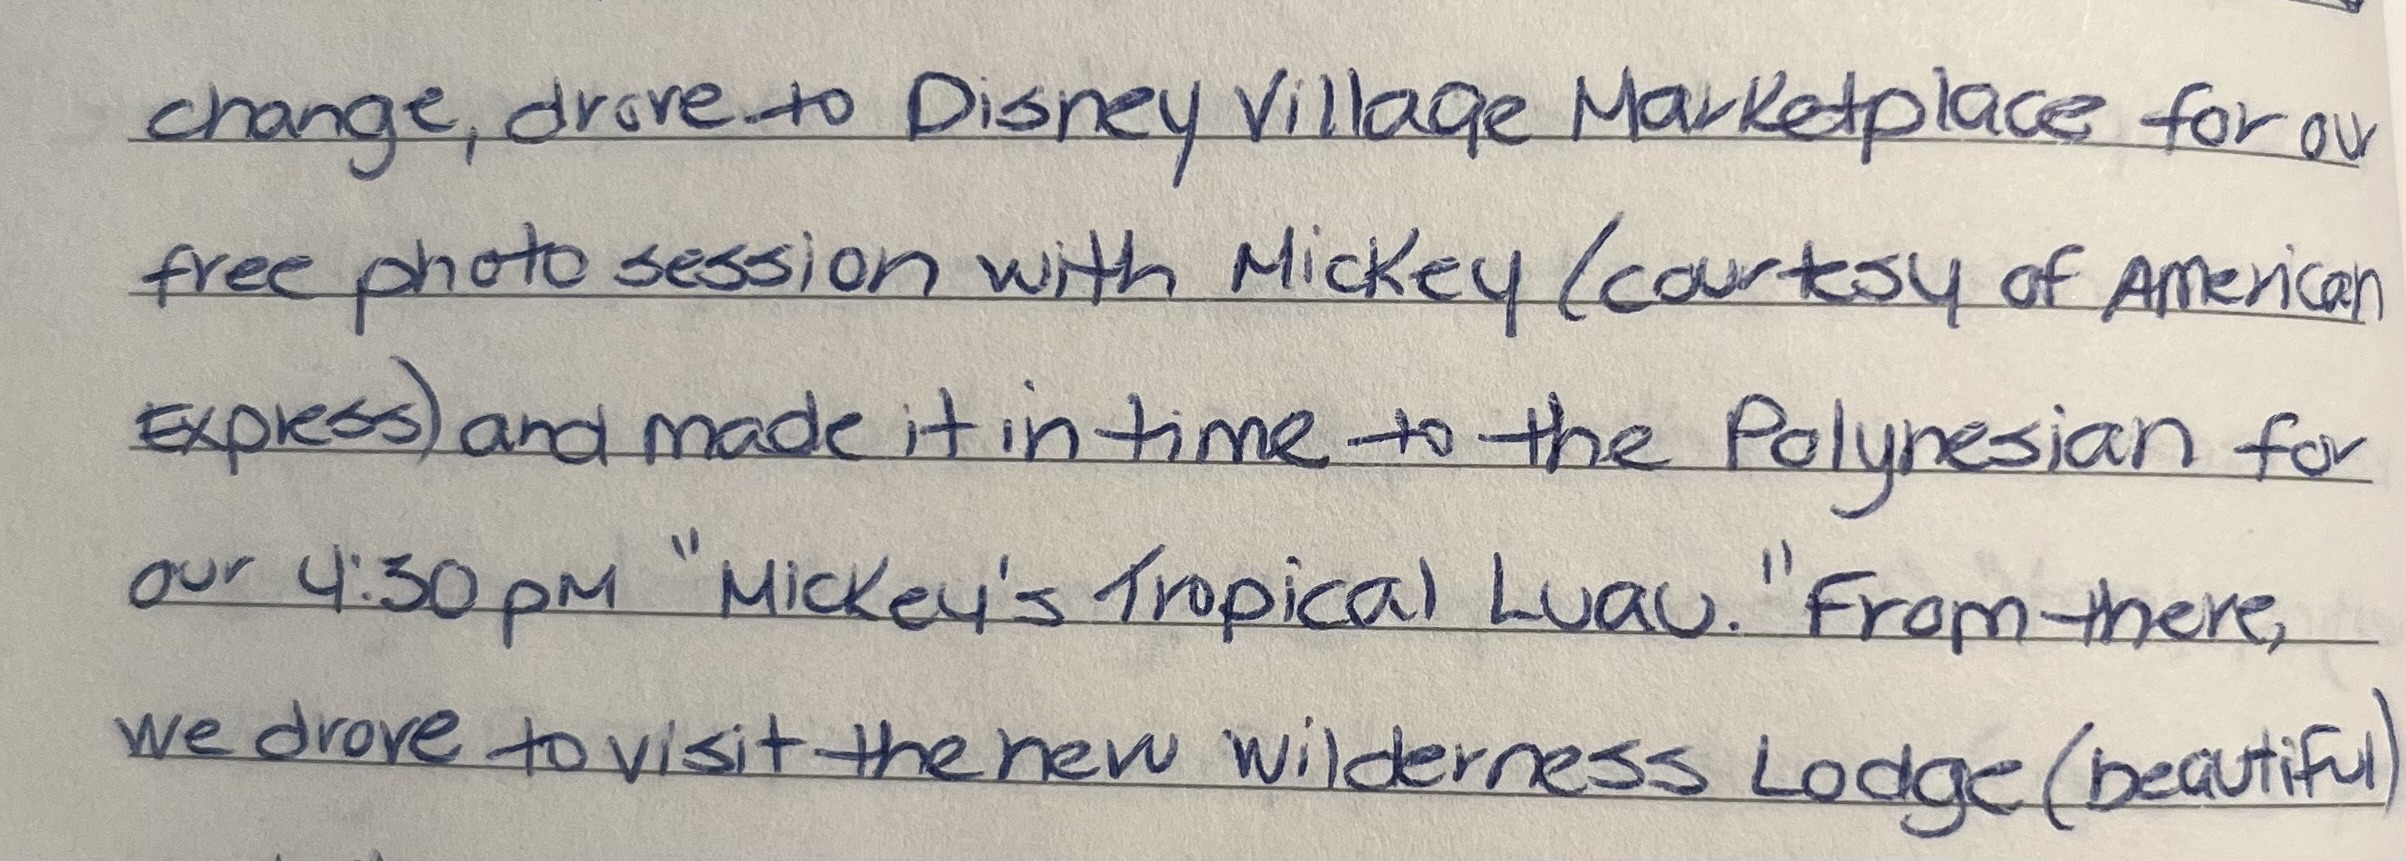 change, drove to Disney Village Marketplace for our
free photo session with Mickey (courtesy of American
Express) and made it in time to the Polynesian for
our 4:30 pM "Mickey's Tropical Luau." From there,
we drove to visit the new Wilderness Lodge (beautiful)